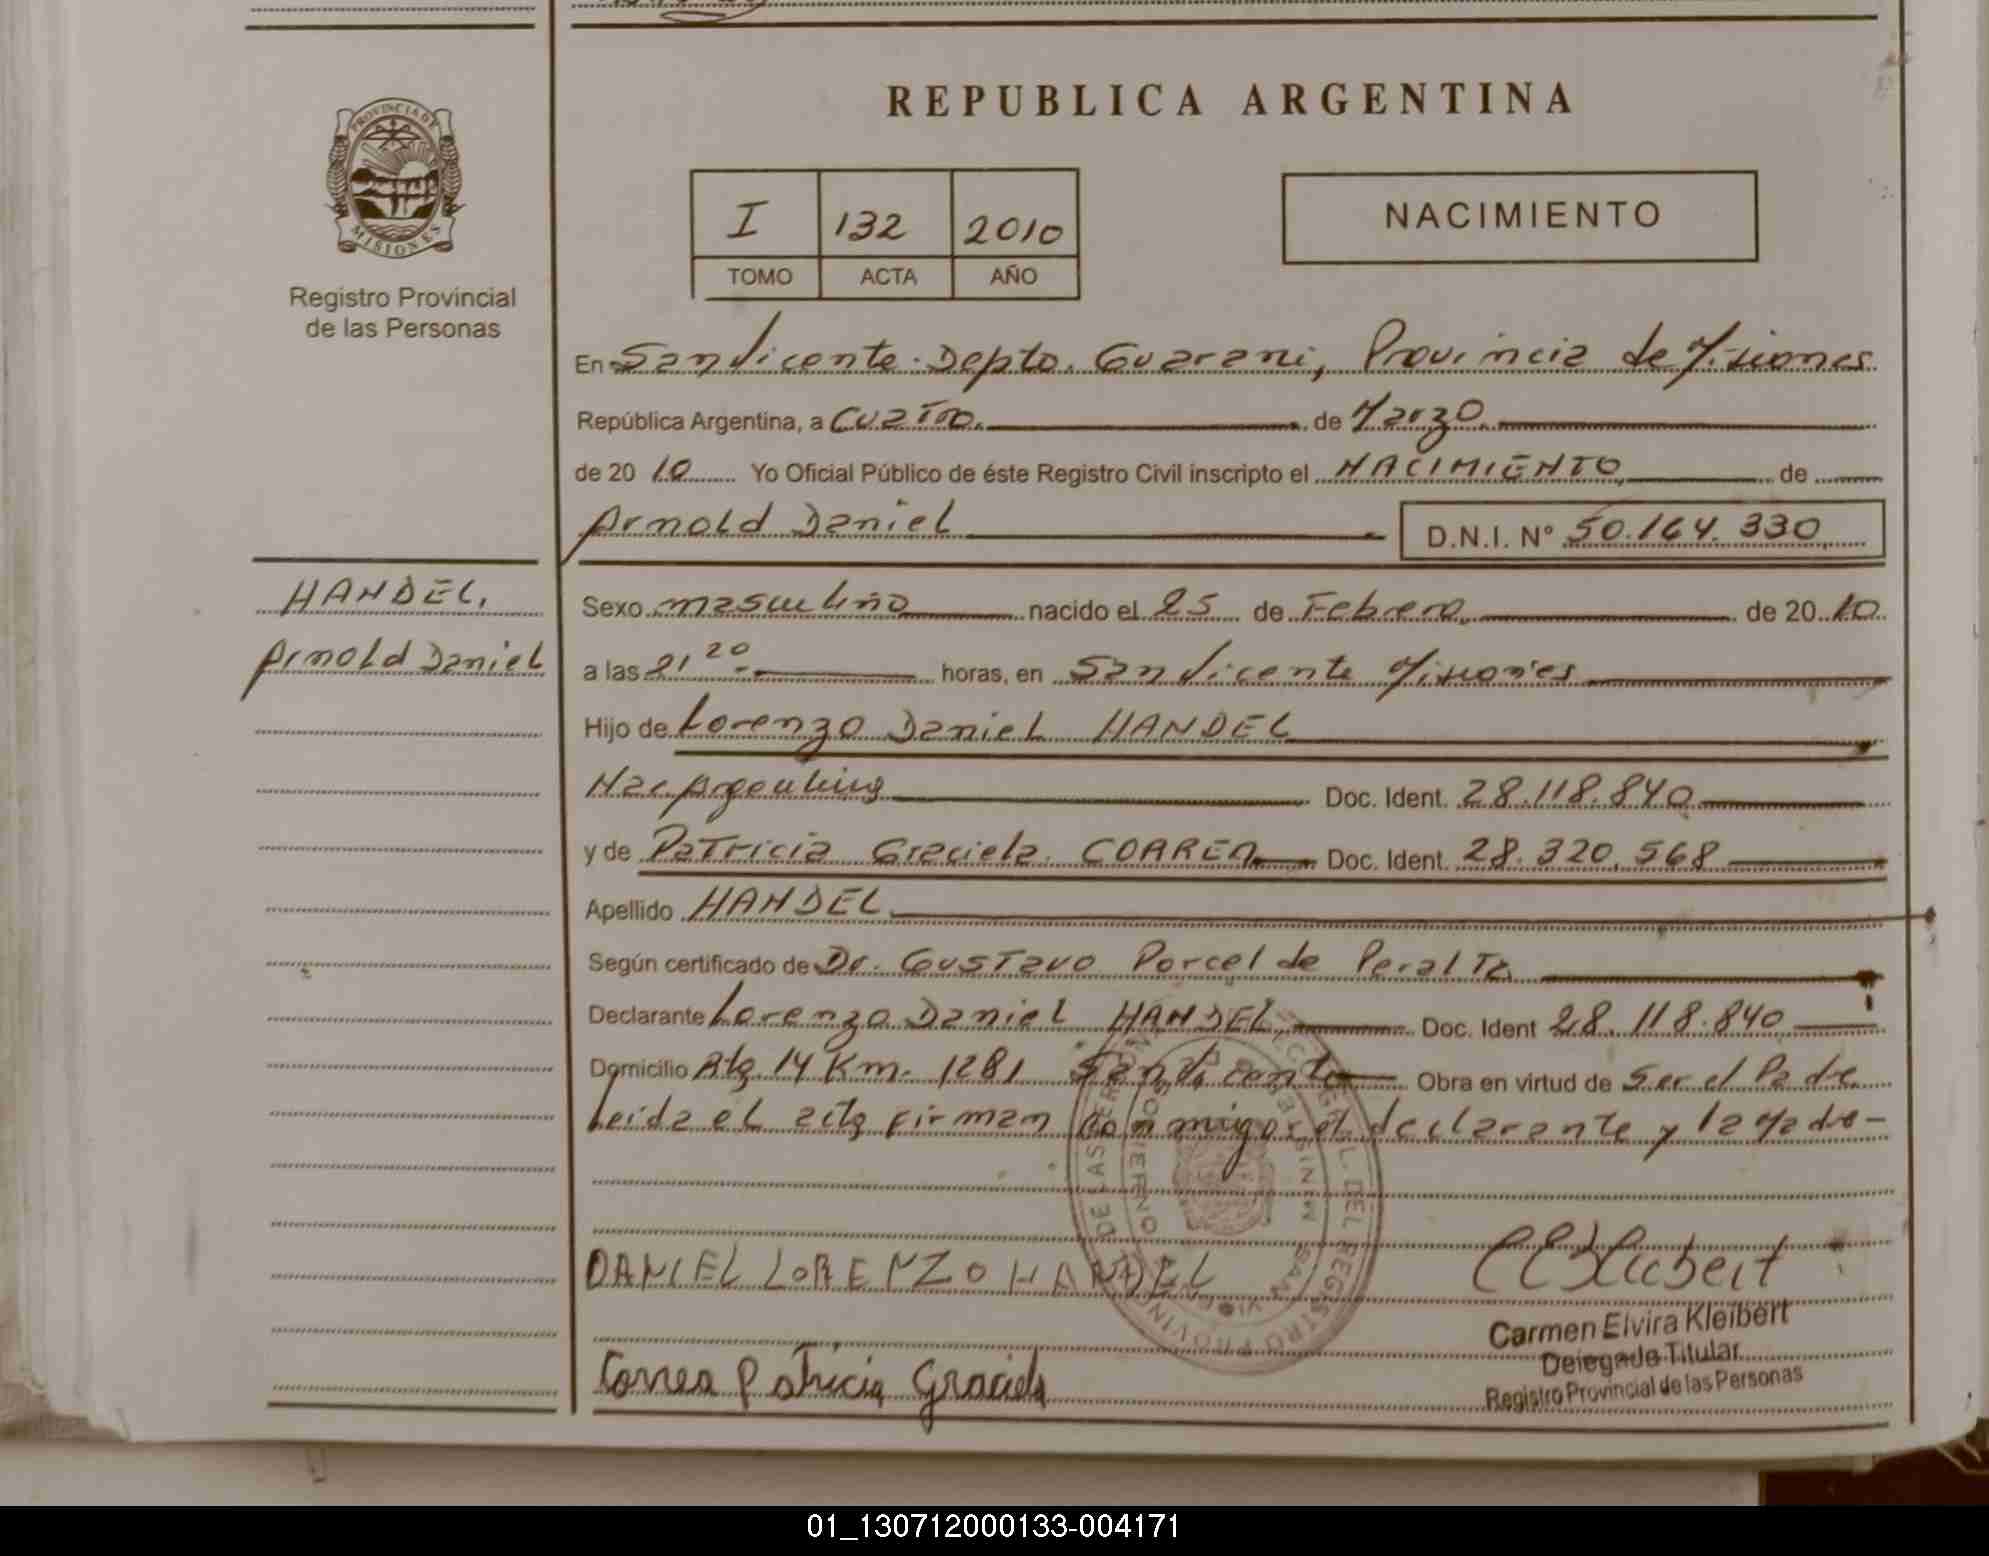 REPUBLICA ARGENTINA
PROVINCIA DE
MISIONES
Registro Provincial
de las Personas
I 132 2010
TOMO ACTA AÑO
NACIMIENTO
En San Vicente. Depto. Guarani, Provincia de Misiones
República Argentina, a Cuatro. de Marzo.
de 20 10 Yo Oficial Público de éste Registro Civil inscripto el NACIMIENTO de
Arnold Daniel D.N.I. Nº 50.164.330
HANDEL,
Arnold Daniel
Sexo masculino nacido el 25 de Febrero. de 20 10
a las 21 20 horas, en San Vicente Misiones
Hijo de Lorenzo Daniel HANDEL
Nac Argentina Doc. Ident. 28.118.840
y de Patricia Graciela CORREA Doc. Ident. 28.320.568
Apellido HANDEL
Según certificado de Dr. Gustavo Porcel de Peralta
Declarante Lorenzo Daniel HANDEL Doc. Ident 28.118.840
Domicilio Rta 14 Km. 1281 San Vicente Obra en virtud de Ser el Padre
Leida el acta firman conmigo el declarante y la Madre -
DANIEL LORENZO HANDEL
Correa Patricia Graciela
Carmen Elvira Kleibert
Delegada Titular
Registro Provincial de las Personas
01_130712000133-004171